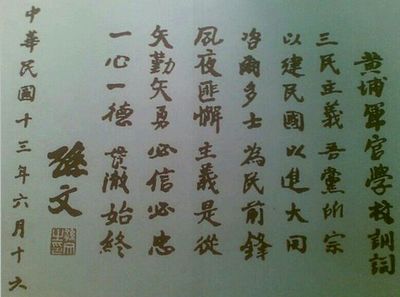 黃埔軍官學校訓詞
三民主義吾黨所宗
以建民國以進大同
咨爾多士為民前鋒
夙夜匪懈主義是從
矢勤矢勇必信必忠
一心一德貫澈始終
孫文
中華民國十三年六月十六